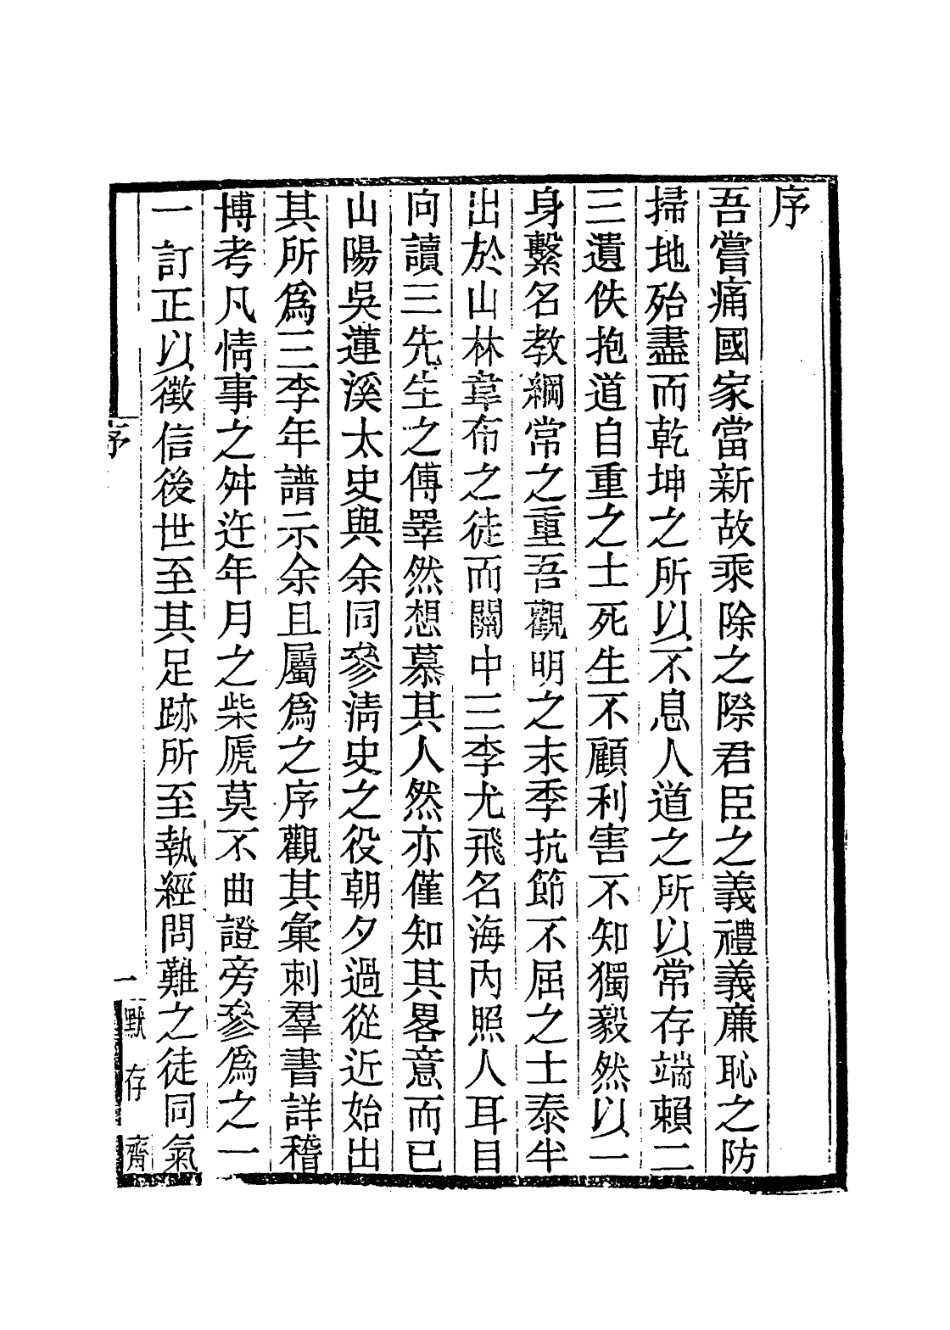 序
吾嘗痛國家當新故乘除之際君臣之義禮義廉恥之防
掃地殆盡而乾坤之所以不息人道之所以常存端賴二
三遺佚抱道自重之士死生不顧利害不知獨毅然以一
身繫名教綱常之重吾觀明之末季抗節不屈之士泰半
出於山林韋布之徒而關中三李尤飛名海內照人耳目
向讀三先生之傳睪然想慕其人然亦僅知其畧意而已
山陽吳蓮溪太史與余同參清史之役朝夕過從近始出
其所爲三李年譜示余且屬爲之序觀其彙刺羣書詳稽
博考凡情事之舛迕年月之柴虒莫不曲證旁參爲之一
一訂正以徵信後世至其足跡所至執經問難之徒同氣
序
一
默存齋